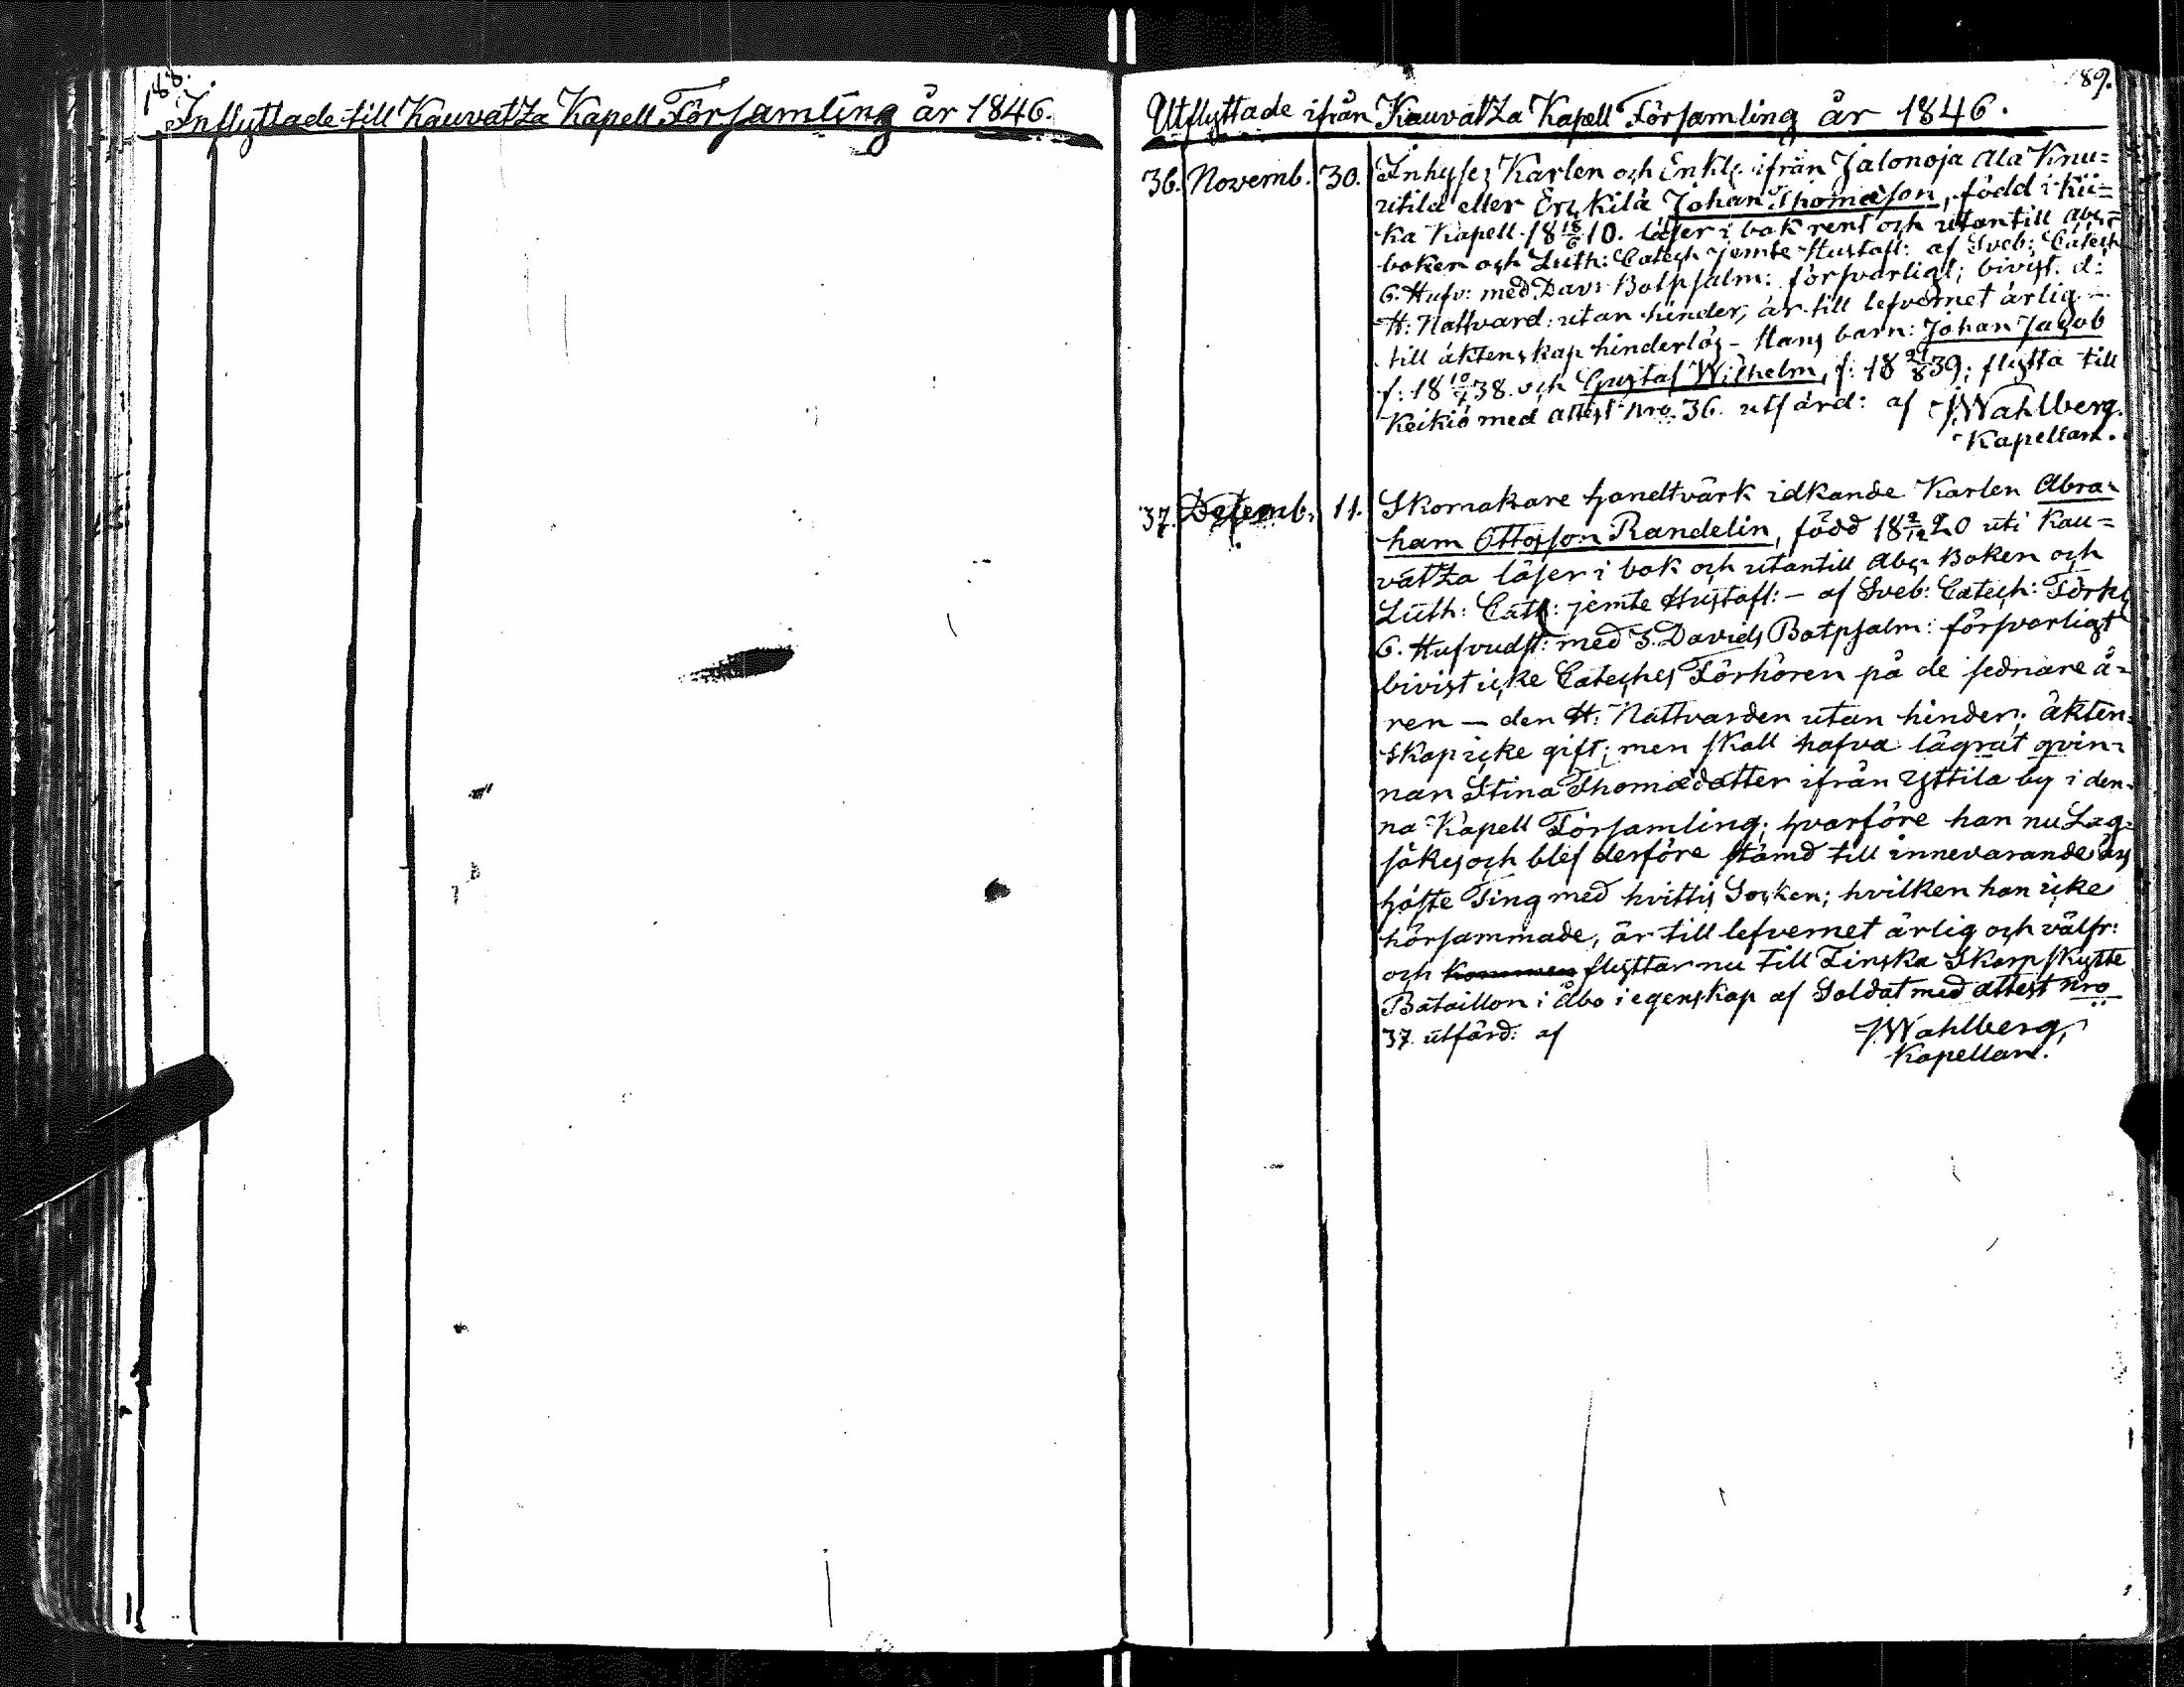 188.
Inflyttade till Kauvatza Kapell Församling år 1846.
189.
Utflyttade ifrån Kauvatza Kapell Församling år 1846.
36. Novemb. 30. Inhyses Karlen och Enkl. ifrån Jalonoja Ala Knu=
utila eller Erskilä Johan Thomasson, född i Kii=
ka Kapell 18 18/6 10. läser i bok rent och utantill abc=
boken och Luth: Catech jemte Hustafl: af Sveb: Catech
6. Hufv: med Dav: Botpsalm: försvarligt; bivist. d:
H: Nattvard: utan hinder, är till lefvernet ärlig —
till äktenskap hinderlös — Hans barn: Johan Jacob
f: 18 10/7 38. och Gustaf Wilhelm, f: 18 21/8 39; flytta till
Keikiö med attest Nro. 36. utfärd: af JWahlberg.
Kapellan.
37. Desemb. 11. Skomakare handtvärk idkande Karlen Abra=
ham Ottosson Randelin, född 18 2/12 20 uti Kau=
vatza läser i bok och utantill Abc Boken och
Luth: Cat: jemte Hustafl: — af Sveb: Catech: Förkl
6. Hufvudst: med 3. Davids Botpsalm: försvarligt
bivist icke Cateches Förhören på de sednare å=
ren — den H: Nattvarden utan hinder; äkten=
skap icke gift; men skall hafva lägrat qvin=
nan Stina Thomædotter ifrån Yttila by i den=
na Kapell Församling; hvarföre han nu Lag=
sökes och blef derföre stämd till innevarande års
höste Ting med hvittis Socken; hvilken han icke
hörsammade, är till lefvernet ärlig och välfr:
och kommen flyttar nu till Finska Skarpskytte
Bataillon i Åbo i egenskap af Soldat med attest Nro
37. utfärd: af JWahlberg,
Kapellan.